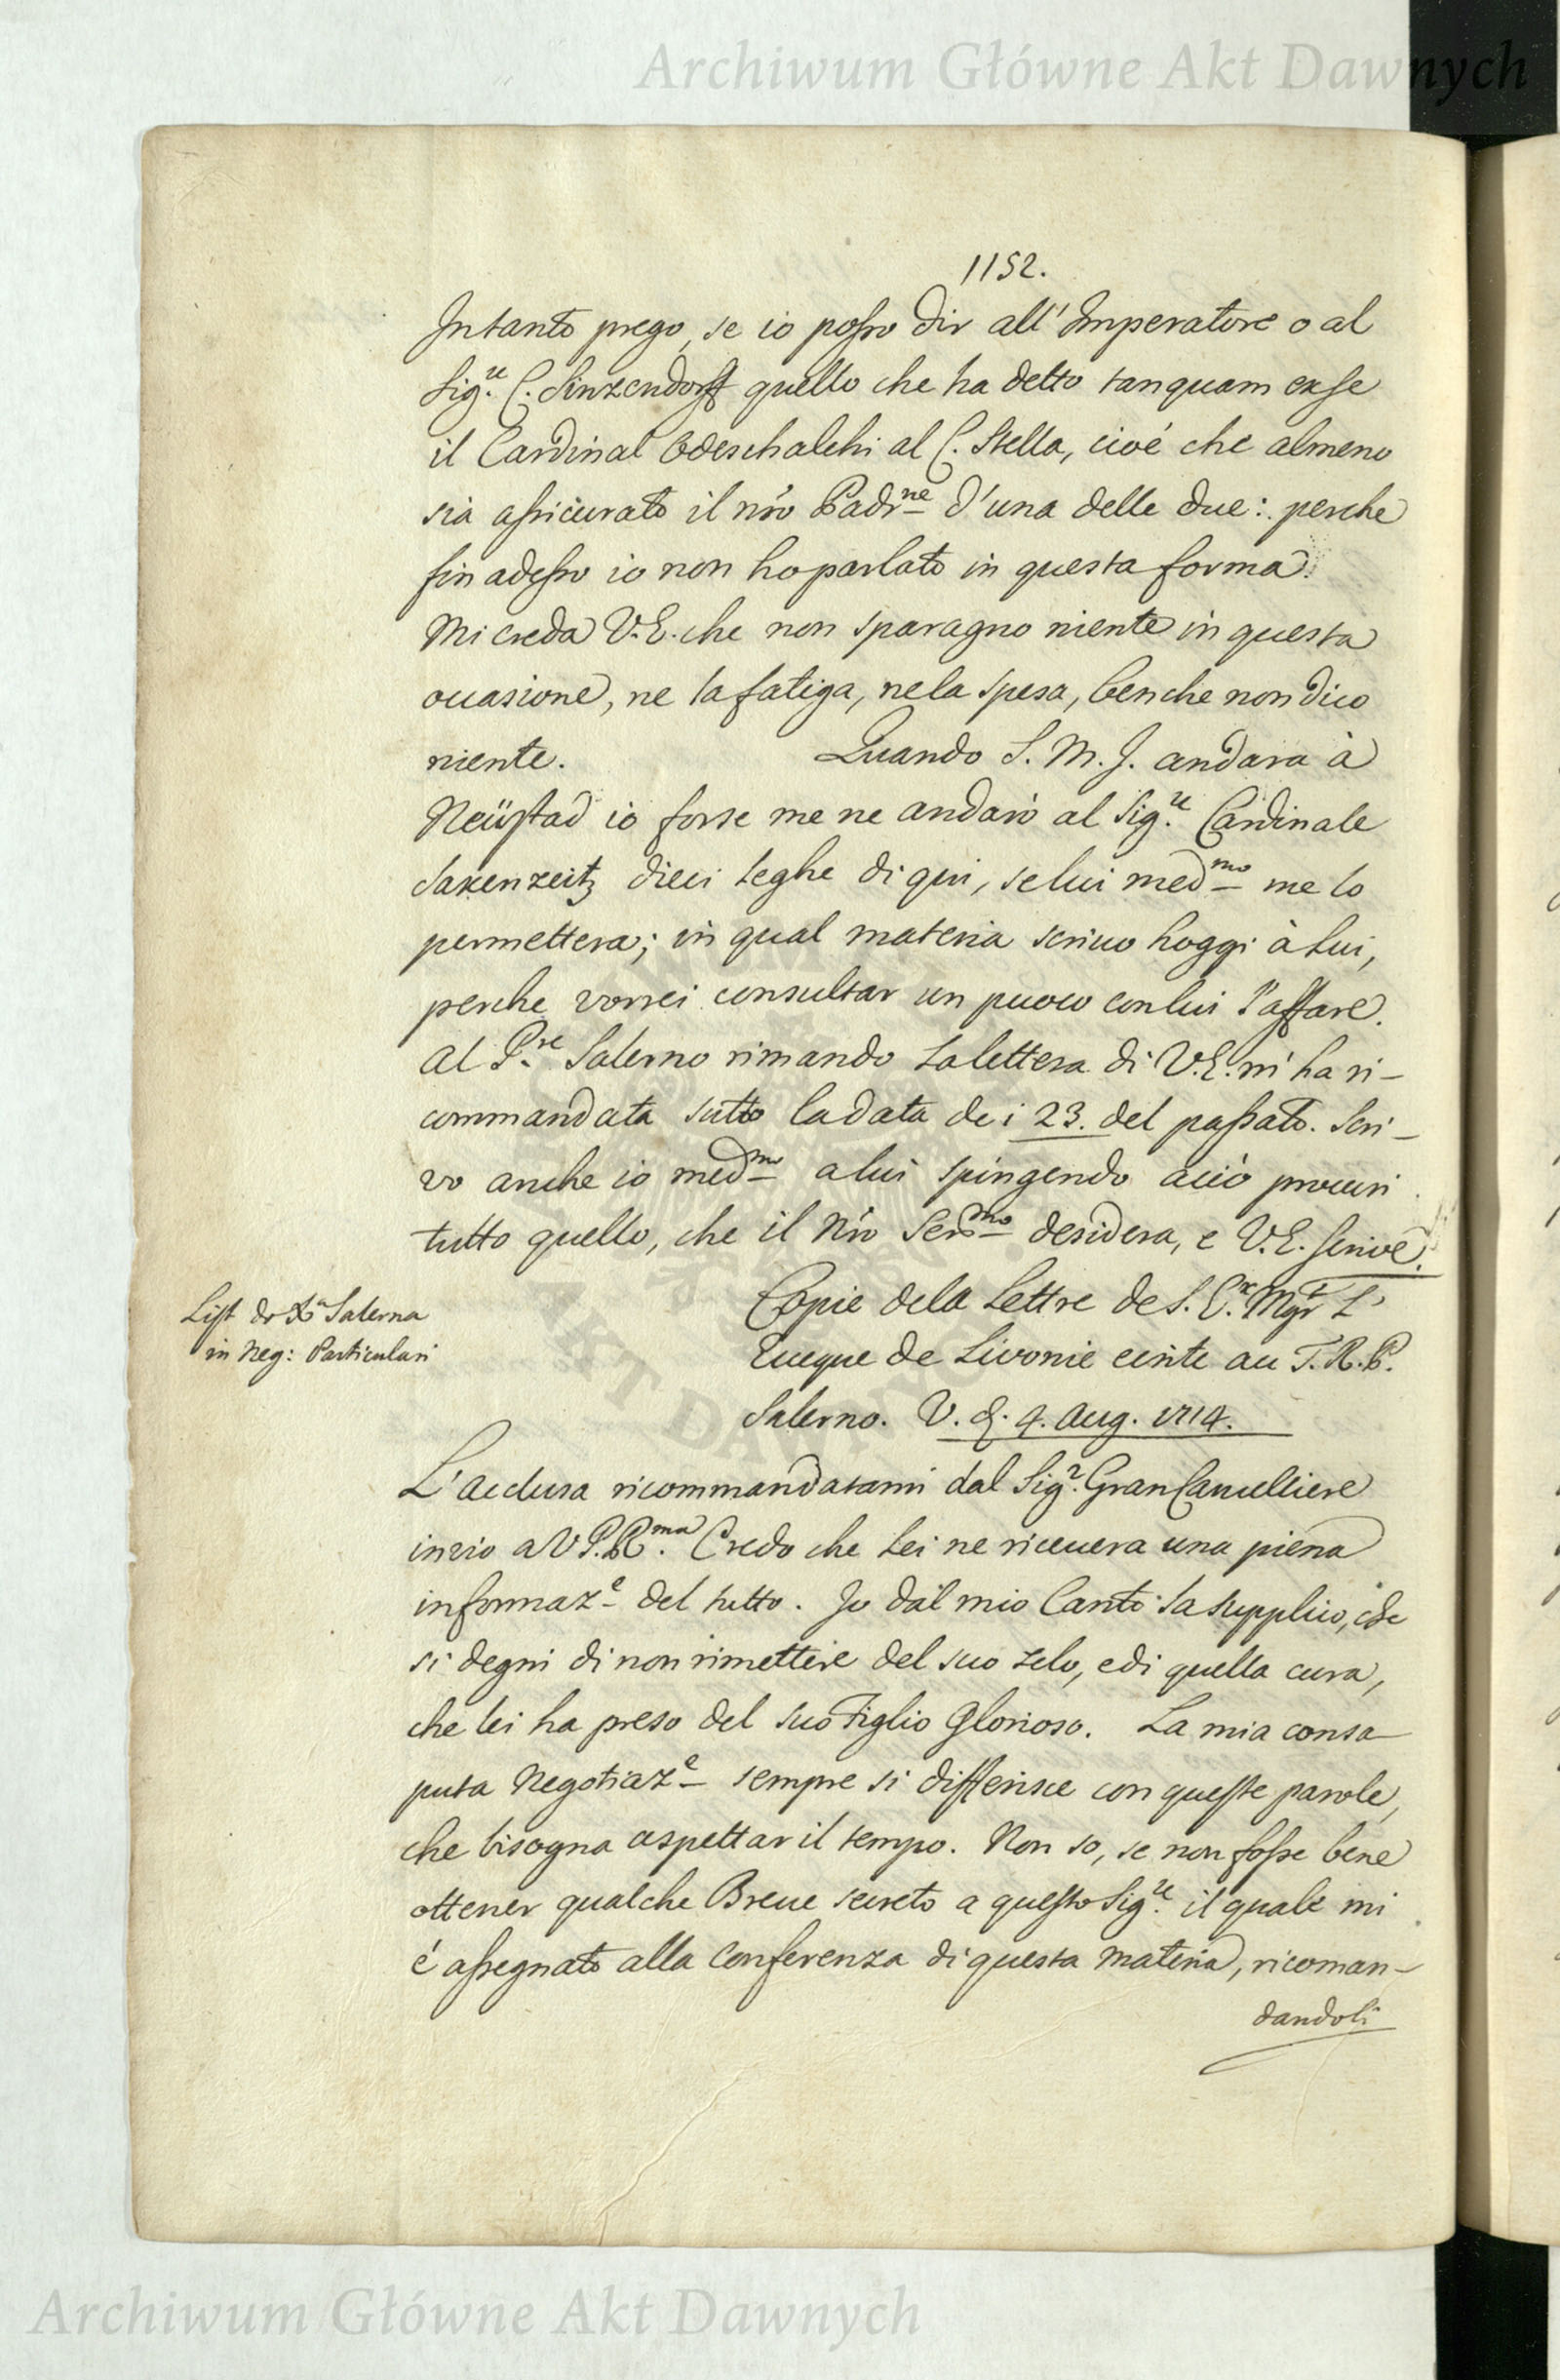 Archiwum Główne Akt Dawnych
1152.
Intanto prego, se io posso dir all' Imperatore o al
Sig.re C. Sinzendorff quello che ha detto tanquam ex se
il Cardinal Odeschalchi al C. Stella, cioé che almeno
sia assicurato il nro Padr.ne d'una delle due: perche
fin adesso io non ho parlato in questa forma.
Mi creda V.E. che non sparagno niente in questa
occasione, ne la fatiga, ne la spesa, benche non dico
niente. Quando S. M. I. andara à
Neüstad io forse me ne andarò al Sig.re Cardinale
Saxenzeitz dieci leghe di qui, se lui med.mo me lo
permettera; in qual materia scrivo hoggi à lui,
perche vorrei consultar un puoco con lui l'affare.
Al P.re Salerno rimando la lettera di V.E. m' ha ri-
commandata sutto la data dei 23. del passato. Scri-
vo anche io med.mo a lui spingendo acciò procuri
tutto quello, che il Nro Ser.mo desidera, e V.E. scrive.
List do Xa Salerna
in Neg: Particulari
Copie dela Lettre de S. Ex. Mgr L'
Eveque de Livonie ecrite au T. R. P.
Salerno. V. d. 4. Aug. 1714.
L'acclusa ricommandatami dal Sig.r Gran Cancelliere
invio a V P. R.ma Credo che Lei ne ricevera una piena
informaz.e del tutto. Io dal mio Canto la supplico, che
si degni di non rimettere del suo zelo, e di quella cura,
che lei ha preso del suo Figlio Glorioso. La mia consa-
puta Negotiaz.e sempre si differisce con queste parole,
che bisogna aspettar il tempo. Non so, se non fosse bene
ottener qualche Breve secreto a questo Sig.re il quale mi
é assegnato alla Conferenza di questa materia, ricoman-
dandoli
Archiwum Główne Akt Dawnych